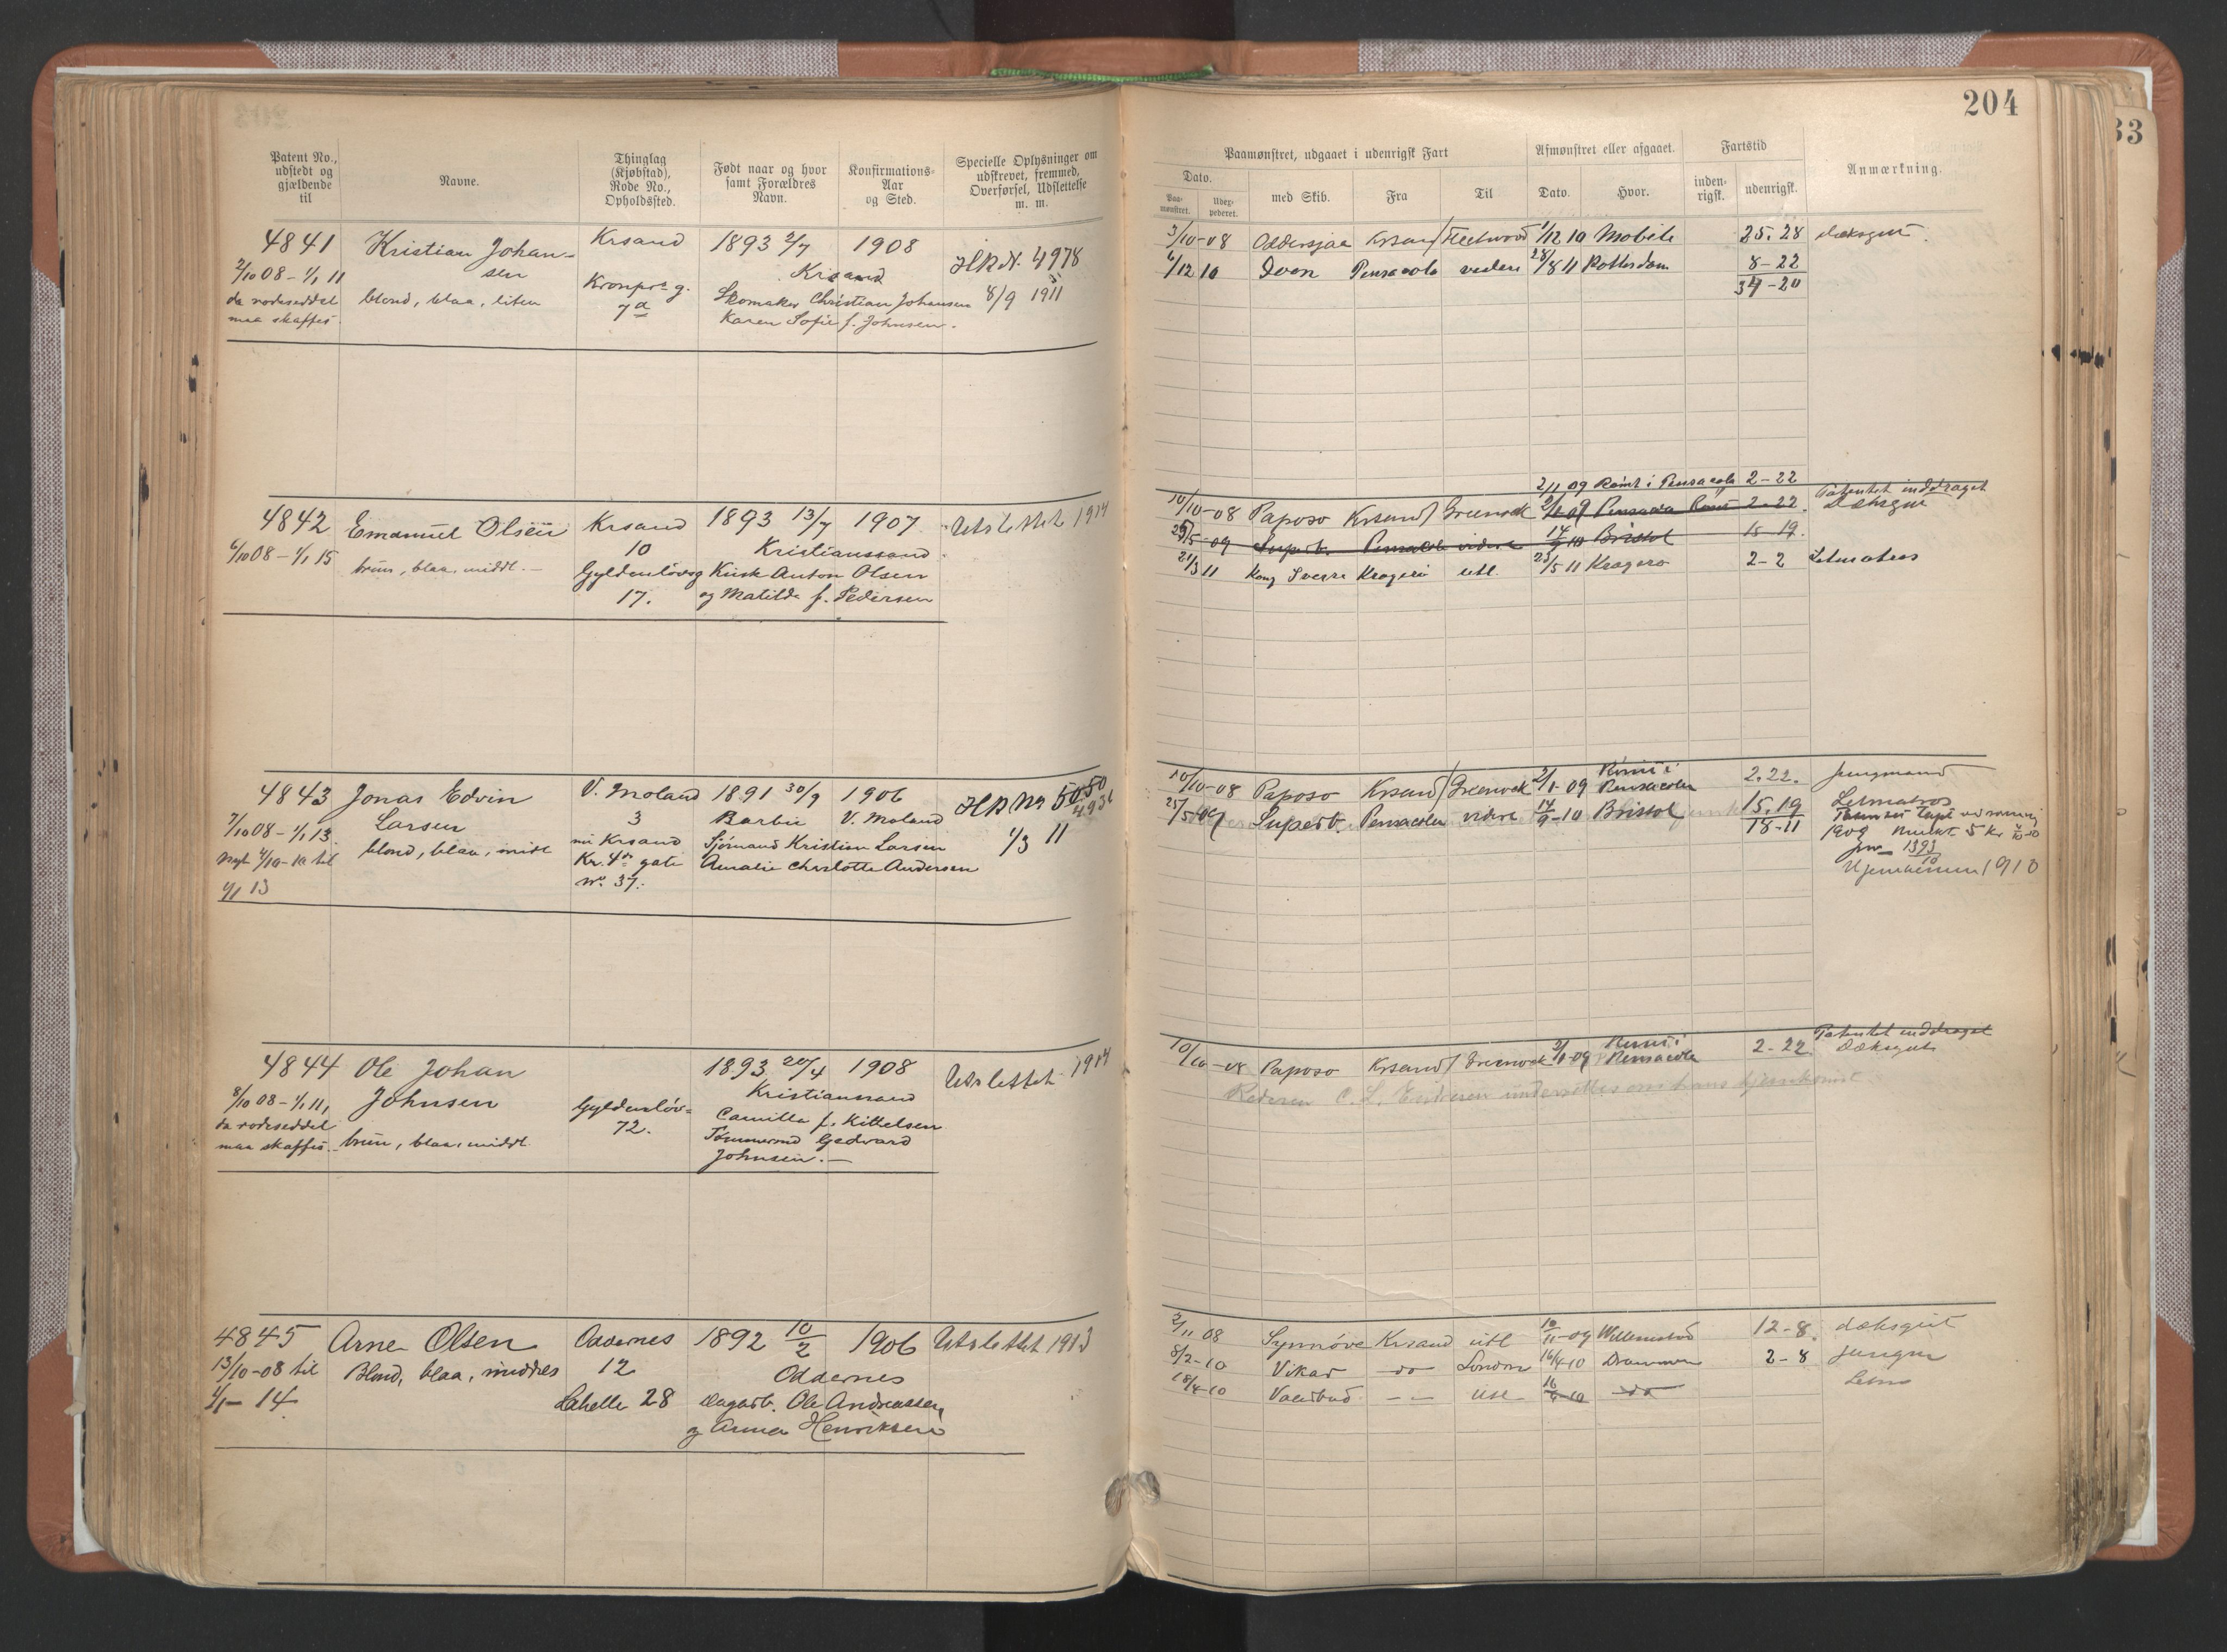 204
33
Patent No., udstedt og gjældende til
Navne.
Thinglag (Kjøbstad), Rode No., Opholdssted.
Født naar og hvor samt Forældres Navn.
Konfirmations-Aar og Sted.
Specielle Oplysninger om udskrevet, fremmed, Overførsel, Udslettelse m. m.
Paamønstret, udgaaet i udenrigsk Fart
Afmønstret eller afgaaet.
Fartstid
Anmærkning.
Dato.
Paamønstret.
Udexpederet.
med Skib.
Fra
Til
Dato.
Hvor.
indenrigsk.
udenrigsk.
4841
2/10 08 – 1/1 11
da rodeseddel
maa skaffes.
Kristian Johansen
blond, blaa, liten
Krsand
Kronprs g.
7a
1893 2/7 1908
Krsand
Skomaker Christian Johansen
Karen Sofie f. Johnsen.
H.R. N. 4978
8/9 1911
3/10-08 Oddersjaa Krsand Fleetwood 1/12 10 Mobile 25.28 dæksgut.
6/12 10 Pensacola 28/8 11 Rotterdam 8-22
34-20
4842
6/10 08 – 1/1 15
Emanuel Olsen
brun, blaa, middl.
Krsand
10
Gyldenløvesg
17.
1893 13/7 1907
Kristianssand
Kusk Anton Olsen
og Matilde f. Pedersen
Utslettet 1914
2/1 09 Rømt i Pensacola 2-22
10/10-08 Paposo Krsand Greenock 2/1 09 Pensacola Rømt 2-22. Patentet inddraget
Dæksgut
25/5-09 Superb. Pensacola videre 14/9-10 Bristol 15-19.
21/3 11 Kong Sverre Kragerø utl. 23/5 11 Kragerø 2-2 Letmatros
4843
7/10 08 – 1/1 13.
Nyt 4/10-10 til
1/1 13
Jonas Edvin
Larsen
blond, blaa, midl
V. Moland
3
nu Krsand
Kr. 4des gate
No. 37.
1891 30/9 1906
Barbu V. Moland
Sjømand Kristian Larsen
Amalie Charlotte Andersen
H.R. No 5050
1/3 11
10/10-08 Paposo Krsand Greenock 2/1-09 Rømt i Pensacola 2.22. Jungmand
25/5 09 Superb. Pensacola videre 14/9-10 Bristol 15.19 Letmatros
18-11
1909 5 Kr
1393
Hjemkommen 1910
4844
8/10 08 – 1/1 11,
da rodeseddel
maa skaffes.
Ole Johan
Johnsen
brun, blaa, middl.
Gyldenløv=
72.
1893 20/4 1908
Kristianssand
Camilla f. Kittelsen
Tømmermd Gedvard
Johnsen.
Utslettet 1914
10/10-08 Paposo Krsand Greenock 2/1-09 Rømt i Pensacola 2-22. Patentet inddraget
Dæksgut
Rederen C. L. Endresen underrettes om hans hjemkomst.
4845
13/10-08 til
1/1- 14
Arne Olsen
Blond, blaa, middels
Oddernes
12
Lahelle 28
1892 10/2 1906
Oddernes
Dagarb. Ole Andreassen
og Anna Henriksen
Utslettet 1913
2/11 08 Synnøve Krsand utl 10/11-09 Willemstad 12-8. dæksgut
8/2-10 Vikar do London 16/4-10 Drammen 2-8 jungm
18/4-10 – – utl do Letm